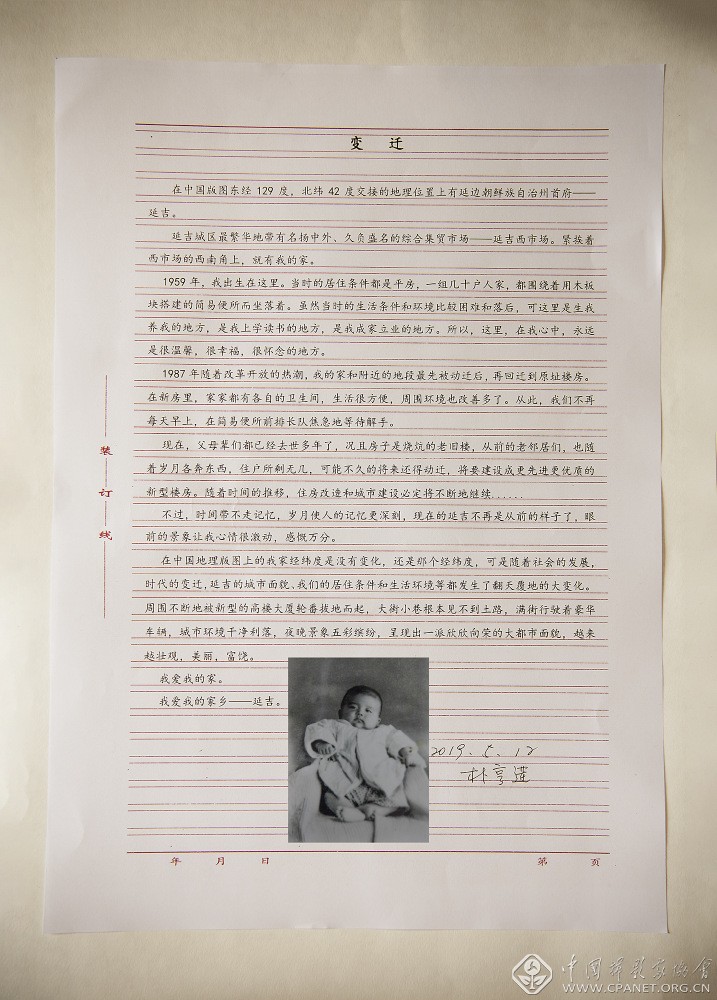 变 迁
在中国版图东经 129 度，北纬 42 度交接的地理位置上有延边朝鲜族自治州首府——
延吉。
延吉城区最繁华地带有名扬中外、久负盛名的综合集贸市场——延吉西市场。紧挨着
西市场的西南角上，就有我的家。
1959 年，我出生在这里。当时的居住条件都是平房，一组几十户人家，都围绕着用木板
块搭建的简易便所而坐落着。虽然当时的生活条件和环境比较困难和落后，可这里是生我
养我的地方，是我上学读书的地方，是我成家立业的地方。所以，这里，在我心中，永远
是很温馨，很幸福，很怀念的地方。
1987 年随着改革开放的热潮，我的家和附近的地段最先被动迁后，再回迁到原址楼房。
在新房里，家家都有各自的卫生间，生活很方便，周围环境也改善多了。从此，我们不再
每天早上，在简易便所前排长队焦急地等待解手。
现在，父母辈们都已经去世多年了，况且房子是烧炕的老旧楼，从前的老邻居们，也随
着岁月各奔东西，住户所剩无几，可能不久的将来还得动迁，将要建设成更先进更优质的
新型楼房。随着时间的推移，住房改造和城市建设必定将不断地继续......
不过，时间带不走记忆，岁月使人的记忆更深刻，现在的延吉不再是从前的样子了，眼
前的景象让我心情很激动，感慨万分。
在中国地理版图上的我家经纬度是没有变化，还是那个经纬度，可是随着社会的发展，
时代的变迁，延吉的城市面貌、我们的居住条件和生活环境等都发生了翻天覆地的大变化。
周围不断地被新型的高楼大厦轮番拔地而起，大街小巷根本见不到土路，满街行驶着豪华
车辆，城市环境干净利落，夜晚景象五彩缤纷，呈现出一派欣欣向荣的大都市面貌，越来
越壮观，美丽，富饶。
我爱我的家。
我爱我的家乡——延吉。
2019.5.12
朴亨莲
装订线
年 月 日
第 页
中国摄影家协会
WWW.CPANET.ORG.CN